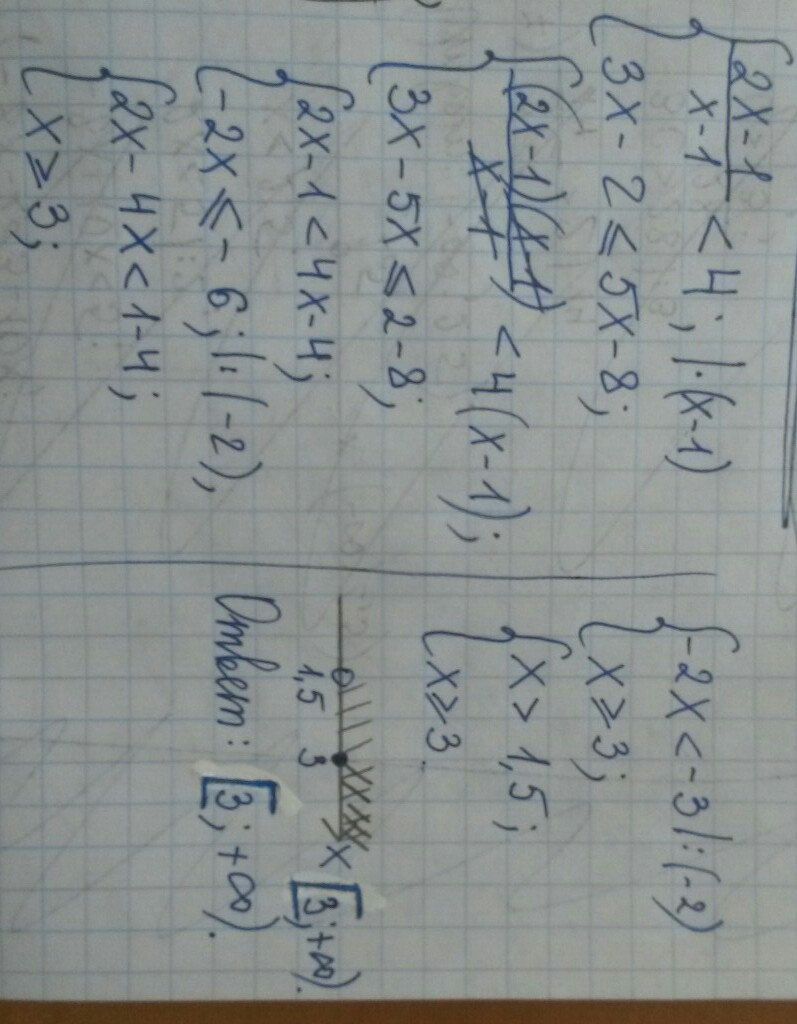 { (2x-1)/(x-1) < 4; | · (x-1)
{ 3x - 2 ≤ 5x - 8;
{ (2x-1)(x-1)/(x-1) < 4(x-1);
{ 3x - 5x ≤ 2 - 8;
{ 2x - 1 < 4x - 4;
{ -2x ≤ -6; | : (-2),
{ 2x - 4x < 1 - 4;
{ x ≥ 3;
{ -2x < -3 | : (-2)
{ x ≥ 3;
{ x > 1,5;
{ x ≥ 3.
1,5 3 x [3; +∞).
Ответ: [3; +∞).